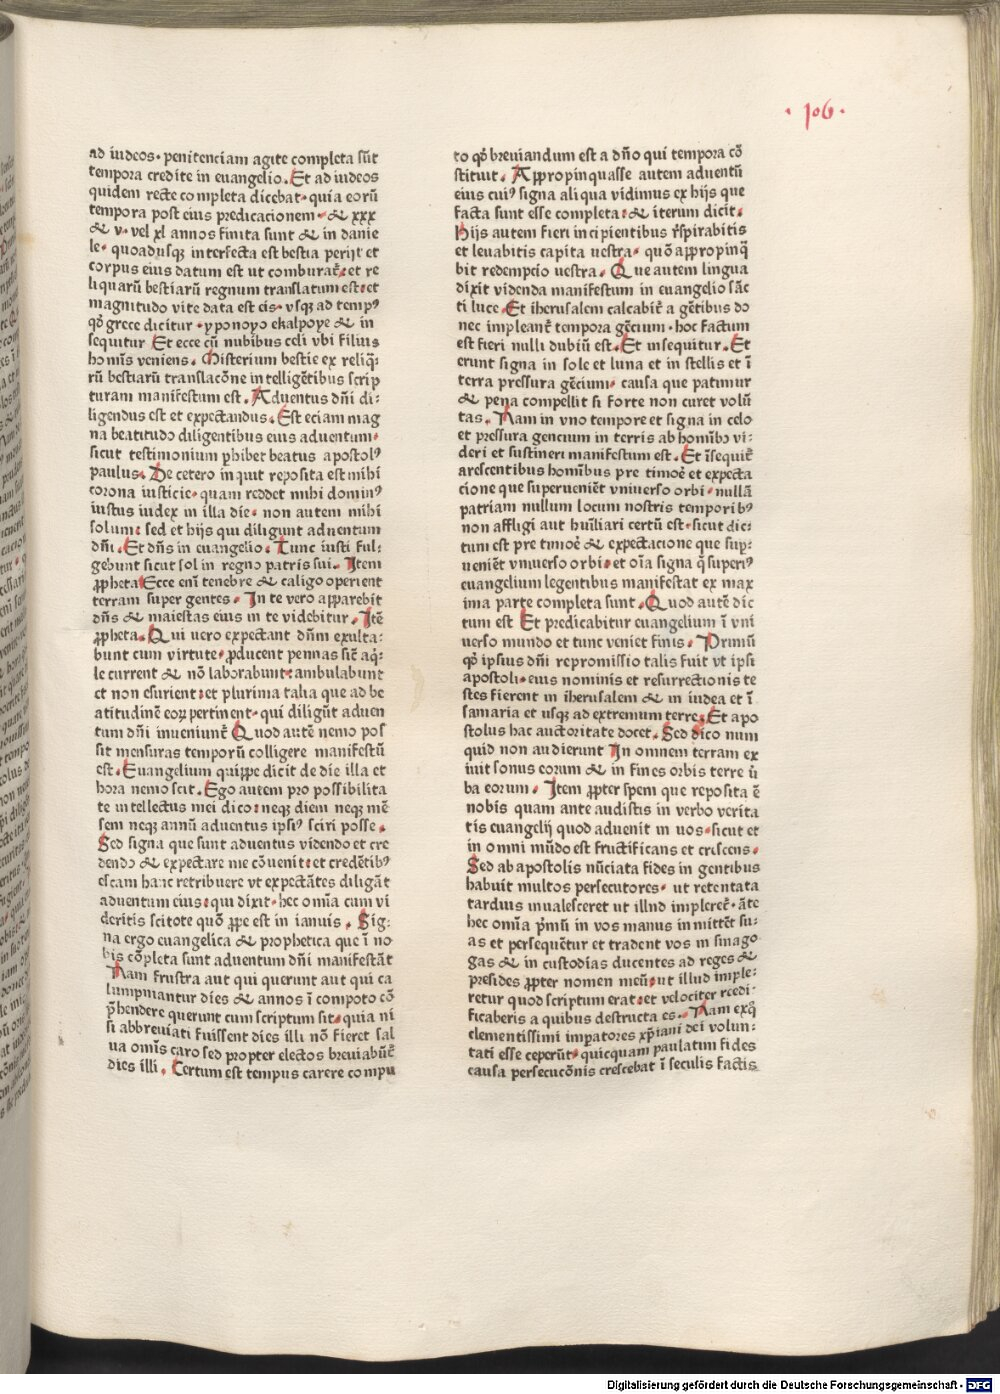 ·106·
ad iudeos· penitenciam agite completa sūt
tempora credite in euangelio· Et ad iudeos
quidem recte completa dicebat· quia eorū
tempora post eius predicacionem· & xxx
& v· vel xl annos finita sunt & in danie
le· quoadusqꝫ interfecta est bestia perijt et
corpus eius datum est ut comburat᷑· et re
liquarū bestiarū regnum translatum est· et
magnitudo vite data est eis· vsqꝫ ad tempꝰ
qđ grece dicitur· yponoyo ekalpoye & in
sequitur Et ecce cū nubibus celi vbi filius
homīs veniens· Misterium bestie ex reliq̄:
rū bestiarū translacōne intelligētibus scrip
turam manifestum est· Aduentus dn̄i di:
ligendus est et expectandus· Est eciam mag
na beatitudo diligentibus eius aduentum·
sicut testimonium ꝑhibet beatus apostolꝰ
paulus· De cetero inquit reposita est mihi
corona iusticie· quam reddet mihi dominꝰ
iustus iudex in illa die· non autem mihi
solum: sed et hijs qui diligunt aduentum
dn̄i· Et dn̄s in euangelio· Tunc iusti ful:
gebunt sicut sol in regno patris sui· Item
ꝓpheta Ecce enī tenebre & caligo operient
terram super gentes· In te vero apparebit
dn̄s & maiestas eius in te videbitur· Itē
ꝓpheta· Qui uero expectant dn̄m exulta:
bunt cum virtute· ꝓducent pennas sic̄t aq̄:
le current & nō laborabunt· ambulabunt
et non esurient: et plurima talia que ad be
atitudinē eoꝝ pertinent· qui diligūt aduen
tum dn̄i inueniunt Quod autē nemo pos
sit mensuras temporū colligere manifestū
est· Euangelium quippe dicit de die illa et
hora nemo scit· Ego autem pro possibilita
te intellectus mei dico: neqꝫ diem neqꝫ mē
sem neqꝫ annū aduentus ipsiꝰ sciri posse·
Sed signa que sunt aduentus videndo et cre
dendo & expectare me cōuenit: et credētibꝰ
escam hanc retribuere vt expectātes diligāt
aduentum eius: qui dixit· hec omīa cum vi
deritis scitote quō ꝓpe est in ianuis· Sig:
na ergo euangelica & prophetica que ī no
bis cōpleta sunt aduentum dn̄i manifestāt
Nam frustra aut qui querunt aut qui ca
lumpniantur dies & annos ī compoto cō
p̄hendere querunt cum scriptum sit· quia ni
si abbreuiati fuissent dies illi nō fieret sal
ua omīs caro sed propter electos breuiabūt᷑
dies illi· Certum est tempus carere compu
to qđ breuiandum est a dn̄o qui tempora cō
stituit· Appropinquasse autem aduentū
eius cuiꝰ signa aliqua vidimus ex hijs que
facta sunt esse completa: & iterum dicit·
Hijs autem fieri incipientibus r̄spirabitis
et leuabitis capita uestra· quō appropinq̄
bit redempcio uestra· Que autem lingua
dixit videnda manifestum in euangelio sāc
ti luce· Et iherusalem calcabit᷑ a gētibus do
nec impleant᷑ tempora gēcium· hoc factum
est fieri nulli dubiū est· Et insequitur· Et
erunt signa in sole et luna et in stellis et ī
terra pressura gēcium· causa que patimur
& pena compellit si forte non curet volū
tas· Nam in vno tempore et signa in celo
et pressura gencium in terris ab homībꝰ vi:
deri et sustineri manifestum est· Et īsequit᷑
arescentibus homībus pre timoē et expecta
cione que superueniēt vniuerso orbi· nullā
patriam nullum locum nostris temporibꝰ
non affligi aut humiliari certū est· sicut dic:
tum est pre timoē & expectacione que suꝑ:
ueniēt vniuerso orbi: et oīa signa q̄ superiꝰ
euangelium legentibus manifestat ex max
ima parte completa sunt· Quod autē dic
tum est Et predicabitur euangelium ī vni
uerso mundo et tunc veniet finis· Primū
qđ ipsius dn̄i repromissio talis fuit vt ipsi
apostoli· eius nominis et resurrectionis te
stes fierent in iherusalem & in iudea et ī
samaria et usqꝫ ad extremum terre· Et apo
stolus hac auctoritate docet· Sed dico num
quid non audierunt In omnem terram ex
iuit sonus eorum & in fines orbis terre ū
ba eorum· Item ꝓpter spem que reposita ē
nobis quam ante audistis in verbo verita
tis euangelij quod aduenit in uos· sicut et
in omni mūdo est fructificans et crescens·
Sed ab apostolis nūciata fides in gentibus
habuit multos persecutores· ut retentata
tardius inualesceret ut illud impleret᷑· āte
hec omīa p̄mū in vos manus in mittēt su:
as et persequētur et tradent vos in sinago
gas & in custodias ducentes ad reges &
presides ꝓpter nomen meū: ut illud imple:
retur quod scriptum erat: et velociter reedi:
ficaberis a quibus destructa es· Nam exq̊
clementissimi imꝑatores xp̄iani dei volun:
tati esse ceperūt· quicquam paulatim fides
causa persecucōnis crescebat ī seculis factis
Digitalisierung gefördert durch die Deutsche Forschungsgemeinschaft - DFG